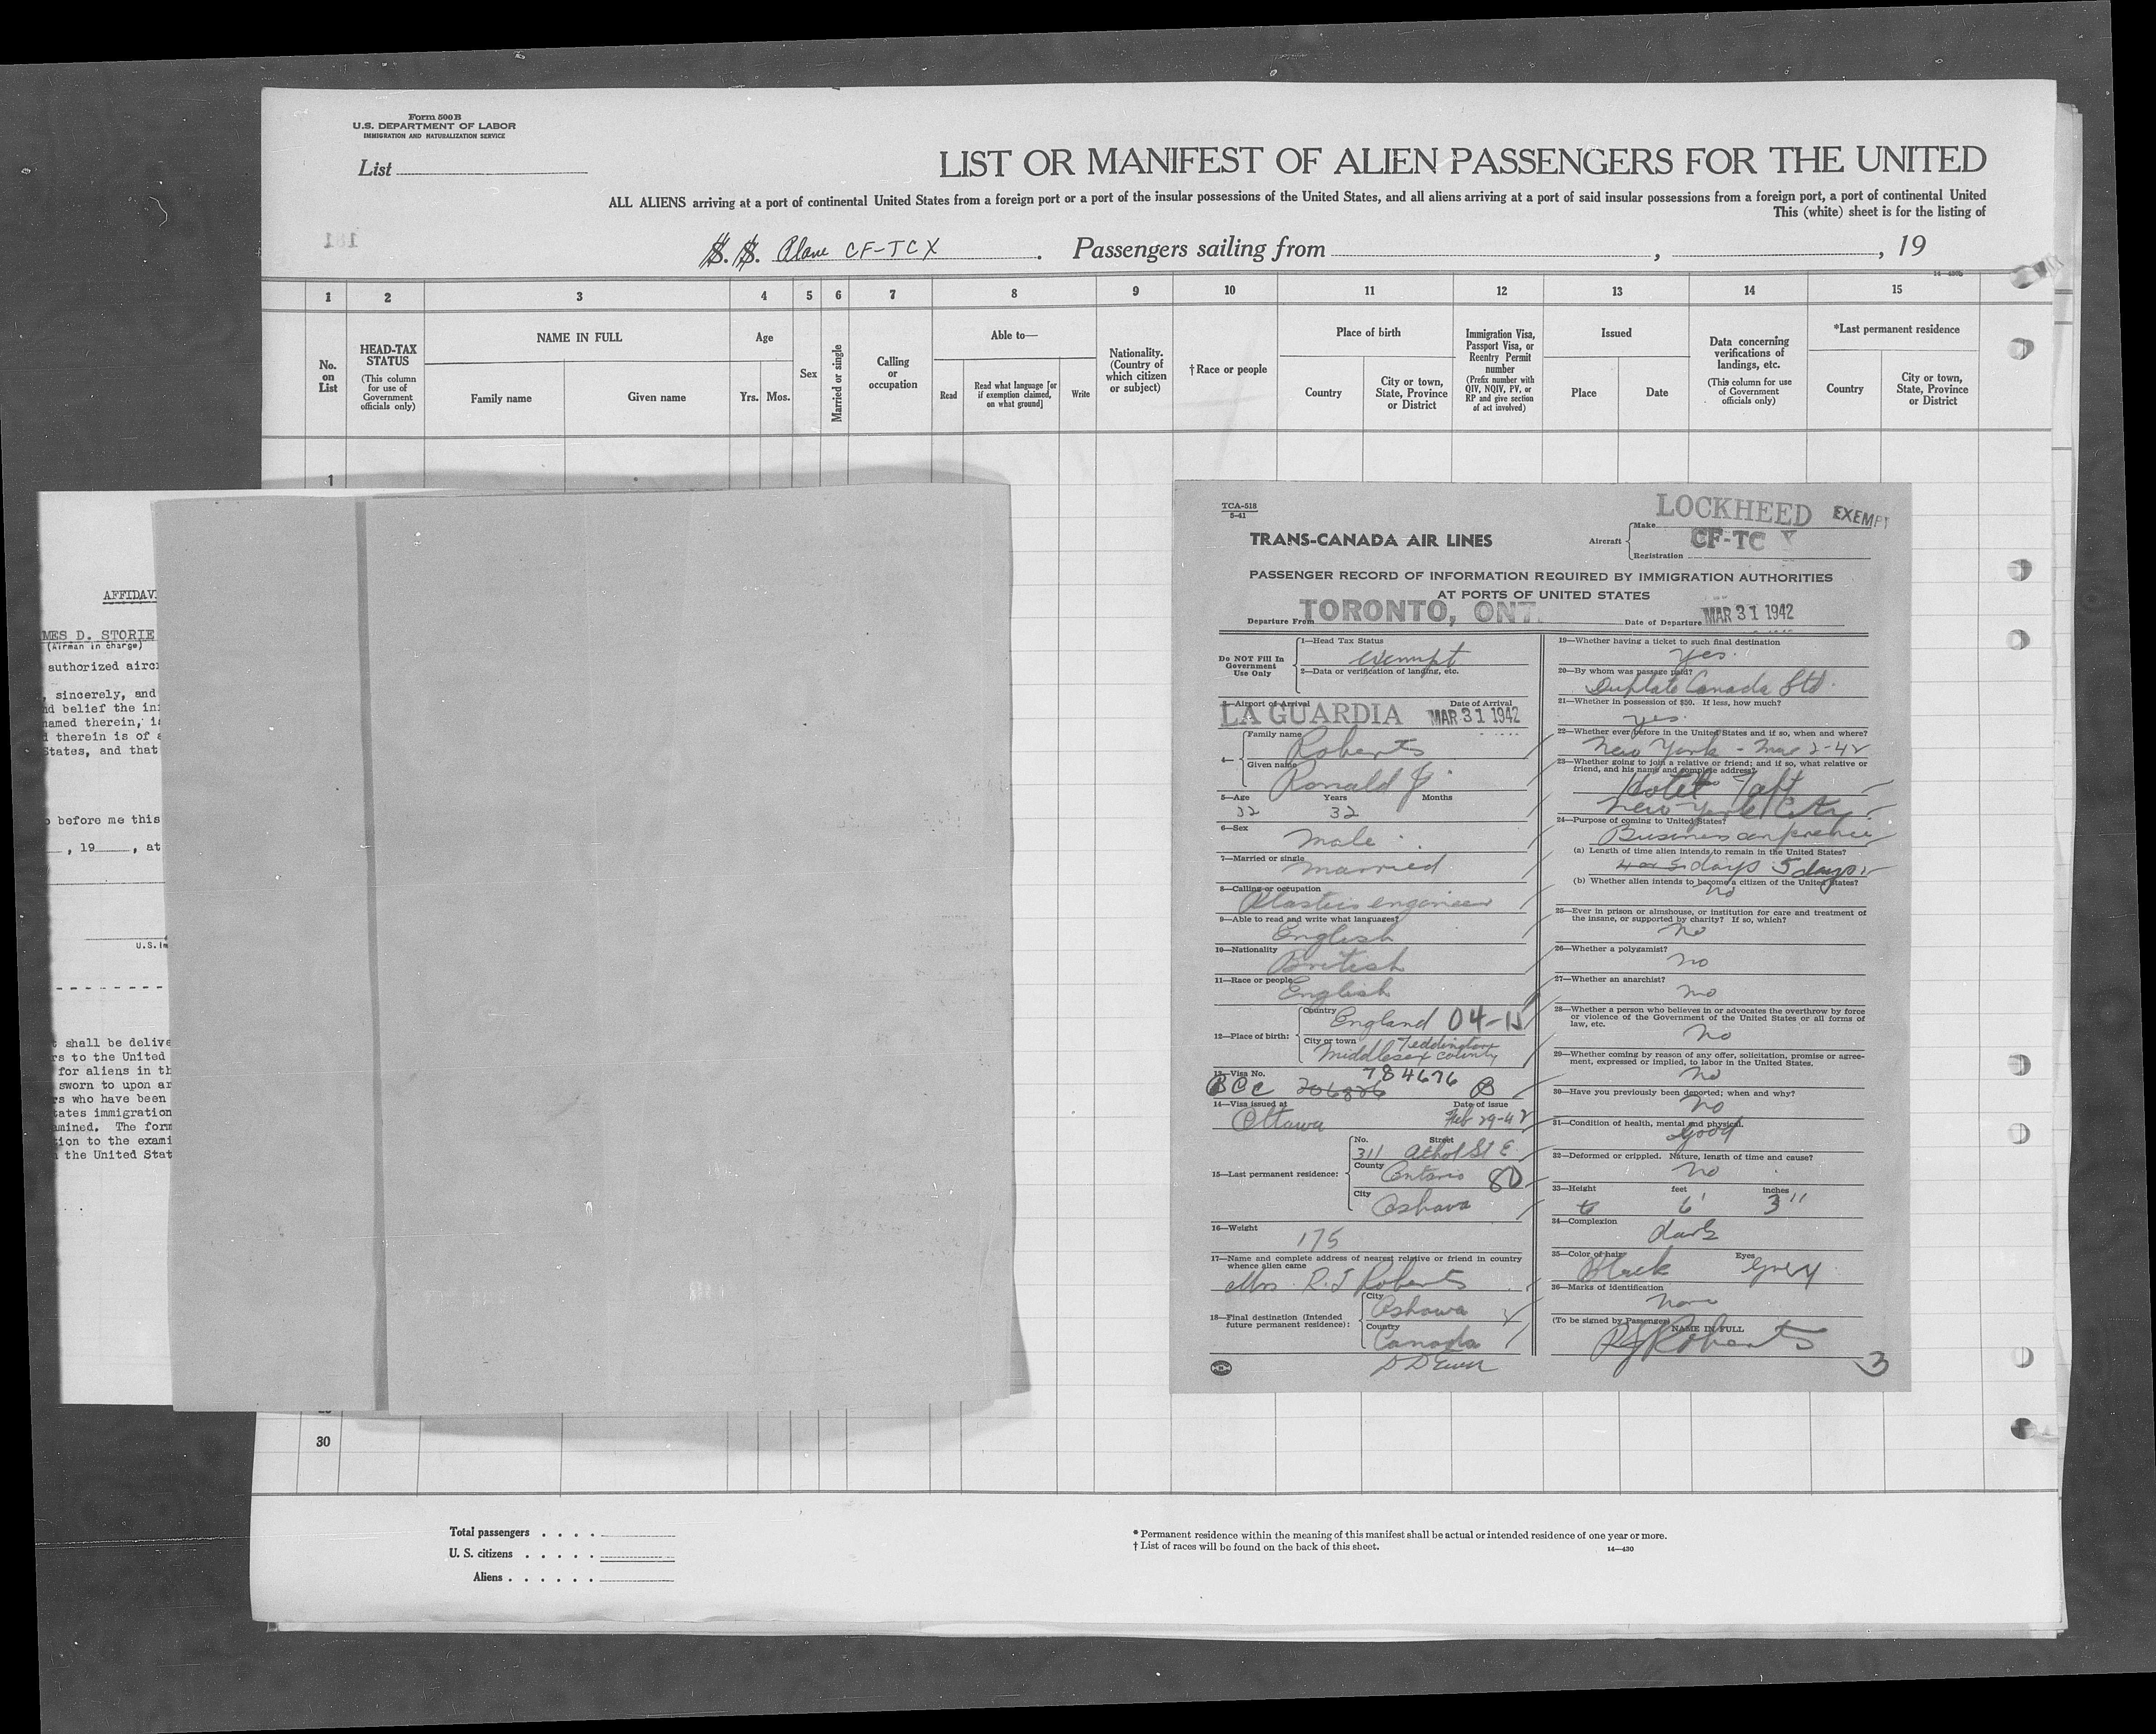 Form 500B
U.S. DEPARTMENT OF LABOR
IMMIGRATION AND NATURALIZATION SERVICE
List
LIST OR MANIFEST OF ALIEN PASSENGERS FOR THE UNITED
ALL ALIENS arriving at a port of continental United States from a foreign port or a port of the insular possessions of the United States, and all aliens arriving at a port of said insular possessions from a foreign port, a port of continental United
This (white) sheet is for the listing of
S. S. Plane CF-TCX . Passengers sailing from , , 19
1 2 3 4 5 6 7 8 9 10 11 12 13 14 15
No. on List
HEAD-TAX STATUS
(This column for use of Government officials only)
NAME IN FULL
Family name
Given name
Age
Yrs. Mos.
Sex
Married or single
Calling or occupation
Able to—
Read
Read what language [or if exemption claimed, on what ground]
Write
Nationality. (Country of which citizen or subject)
† Race or people
Place of birth
Country
City or town, State, Province or District
Immigration Visa, Passport Visa, or Reentry Permit number
(Prefix number with QIV, NQIV, PV, or RP and give section of act involved)
Issued
Place
Date
Data concerning verifications of landings, etc.
(This column for use of Government officials only)
*Last permanent residence
Country
City or town, State, Province or District
1
AFFIDAVI
MES D. STORIE
(Airman in charge)
authorized airc
, sincerely, and
d belief the in
named therein, i
therein is of
States, and that
before me this
, 19 , at
U.S.Im
shall be delive
rs to the United
for aliens in th
sworn to upon ar
rs who have been
tates immigration
mined. The form
tion to the exami
the United Stat
TCA-518
5-41
TRANS-CANADA AIR LINES
Aircraft
Make LOCKHEED EXEMPT
Registration CF-TC X
PASSENGER RECORD OF INFORMATION REQUIRED BY IMMIGRATION AUTHORITIES
AT PORTS OF UNITED STATES
Departure From TORONTO, ONT. Date of Departure MAR 31 1942
Do NOT Fill In Government Use Only
1—Head Tax Status
exempt
2—Data or verification of landing, etc.
3—Airport of Arrival Date of Arrival
LA GUARDIA MAR 31 1942
4—
Family name
Roberts
Given name
Ronald J
5—Age Years Months
32 32
6—Sex
male
7—Married or single
married
8—Calling or occupation
Plastics engineer
9—Able to read and write what languages?
English
10—Nationality
British
11—Race or people
English
12—Place of birth:
Country
England 04-15
City or town Teddington
Middlesex county
13—Visa No. 784676
BCC B
14—Visa issued at Date of issue
Ottawa Feb 29-42
15—Last permanent residence:
No. Street
311 Athol St E
County
Ontario 80
City
Oshawa
16—Weight
175
17—Name and complete address of nearest relative or friend in country whence alien came
Mrs. R. J Roberts
18—Final destination (Intended future permanent residence):
City
Oshawa
Country
Canada
19—Whether having a ticket to such final destination
yes.
20—By whom was passage paid?
Duplate Canada Ltd.
21—Whether in possession of $50. If less, how much?
yes.
22—Whether ever before in the United States and if so, when and where?
New York - Mar 2-42
23—Whether going to join a relative or friend; and if so, what relative or friend, and his name and complete address?
Hotel Taft
New York City
24—Purpose of coming to United States?
Business conference
(a) Length of time alien intends to remain in the United States?
4 or 5 days 5 days
(b) Whether alien intends to become a citizen of the United States?
no
25—Ever in prison or almshouse, or institution for care and treatment of the insane, or supported by charity? If so, which?
no
26—Whether a polygamist?
no
27—Whether an anarchist?
no
28—Whether a person who believes in or advocates the overthrow by force or violence of the Government of the United States or all forms of law, etc.
no
29—Whether coming by reason of any offer, solicitation, promise or agreement, expressed or implied, to labor in the United States.
no
30—Have you previously been deported; when and why?
no
31—Condition of health, mental and physical.
good
32—Deformed or crippled. Nature, length of time and cause?
no
33—Height feet inches
6 6' 3"
34—Complexion
dark
35—Color of hair Eyes
Black Grey
36—Marks of identification
none
(To be signed by Passenger) NAME IN FULL
RJ Roberts
3
30
Total passengers . . . .
U. S. citizens . . . . .
Aliens . . . . . .
* Permanent residence within the meaning of this manifest shall be actual or intended residence of one year or more.
† List of races will be found on the back of this sheet.
14—430